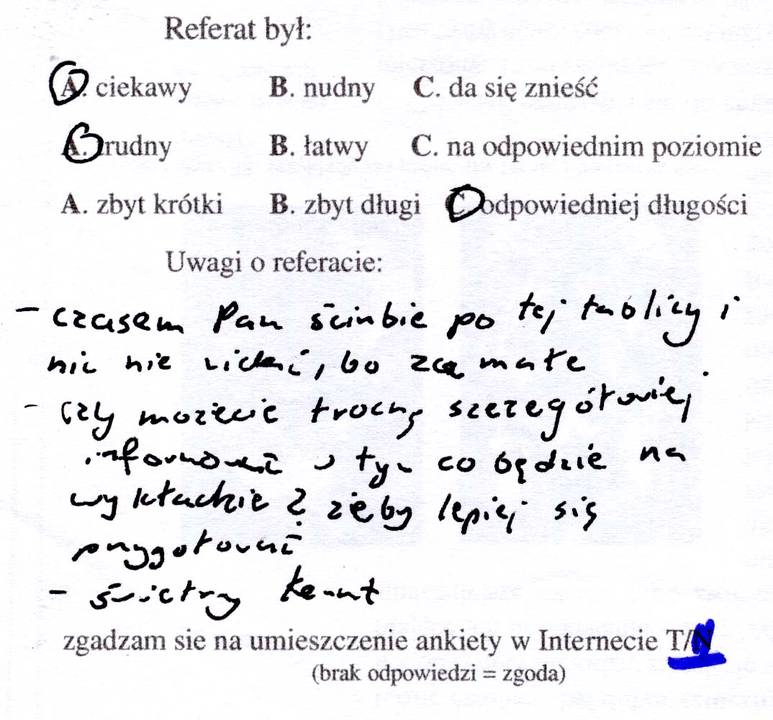 Referat był:
A. ciekawy B. nudny C. da się znieść
A. trudny B. łatwy C. na odpowiednim poziomie
A. zbyt krótki B. zbyt długi C. odpowiedniej długości
Uwagi o referacie:
- czasem Pan po tej tablicy i
nic nie widać, bo za małe
- czy możecie trochę szczegółowiej
informować o tym co będzie na
wykładzie żeby lepiej się
przygotować
- świetny temat
zgadzam sie na umieszczenie ankiety w Internecie T/N
(brak odpowiedzi = zgoda)